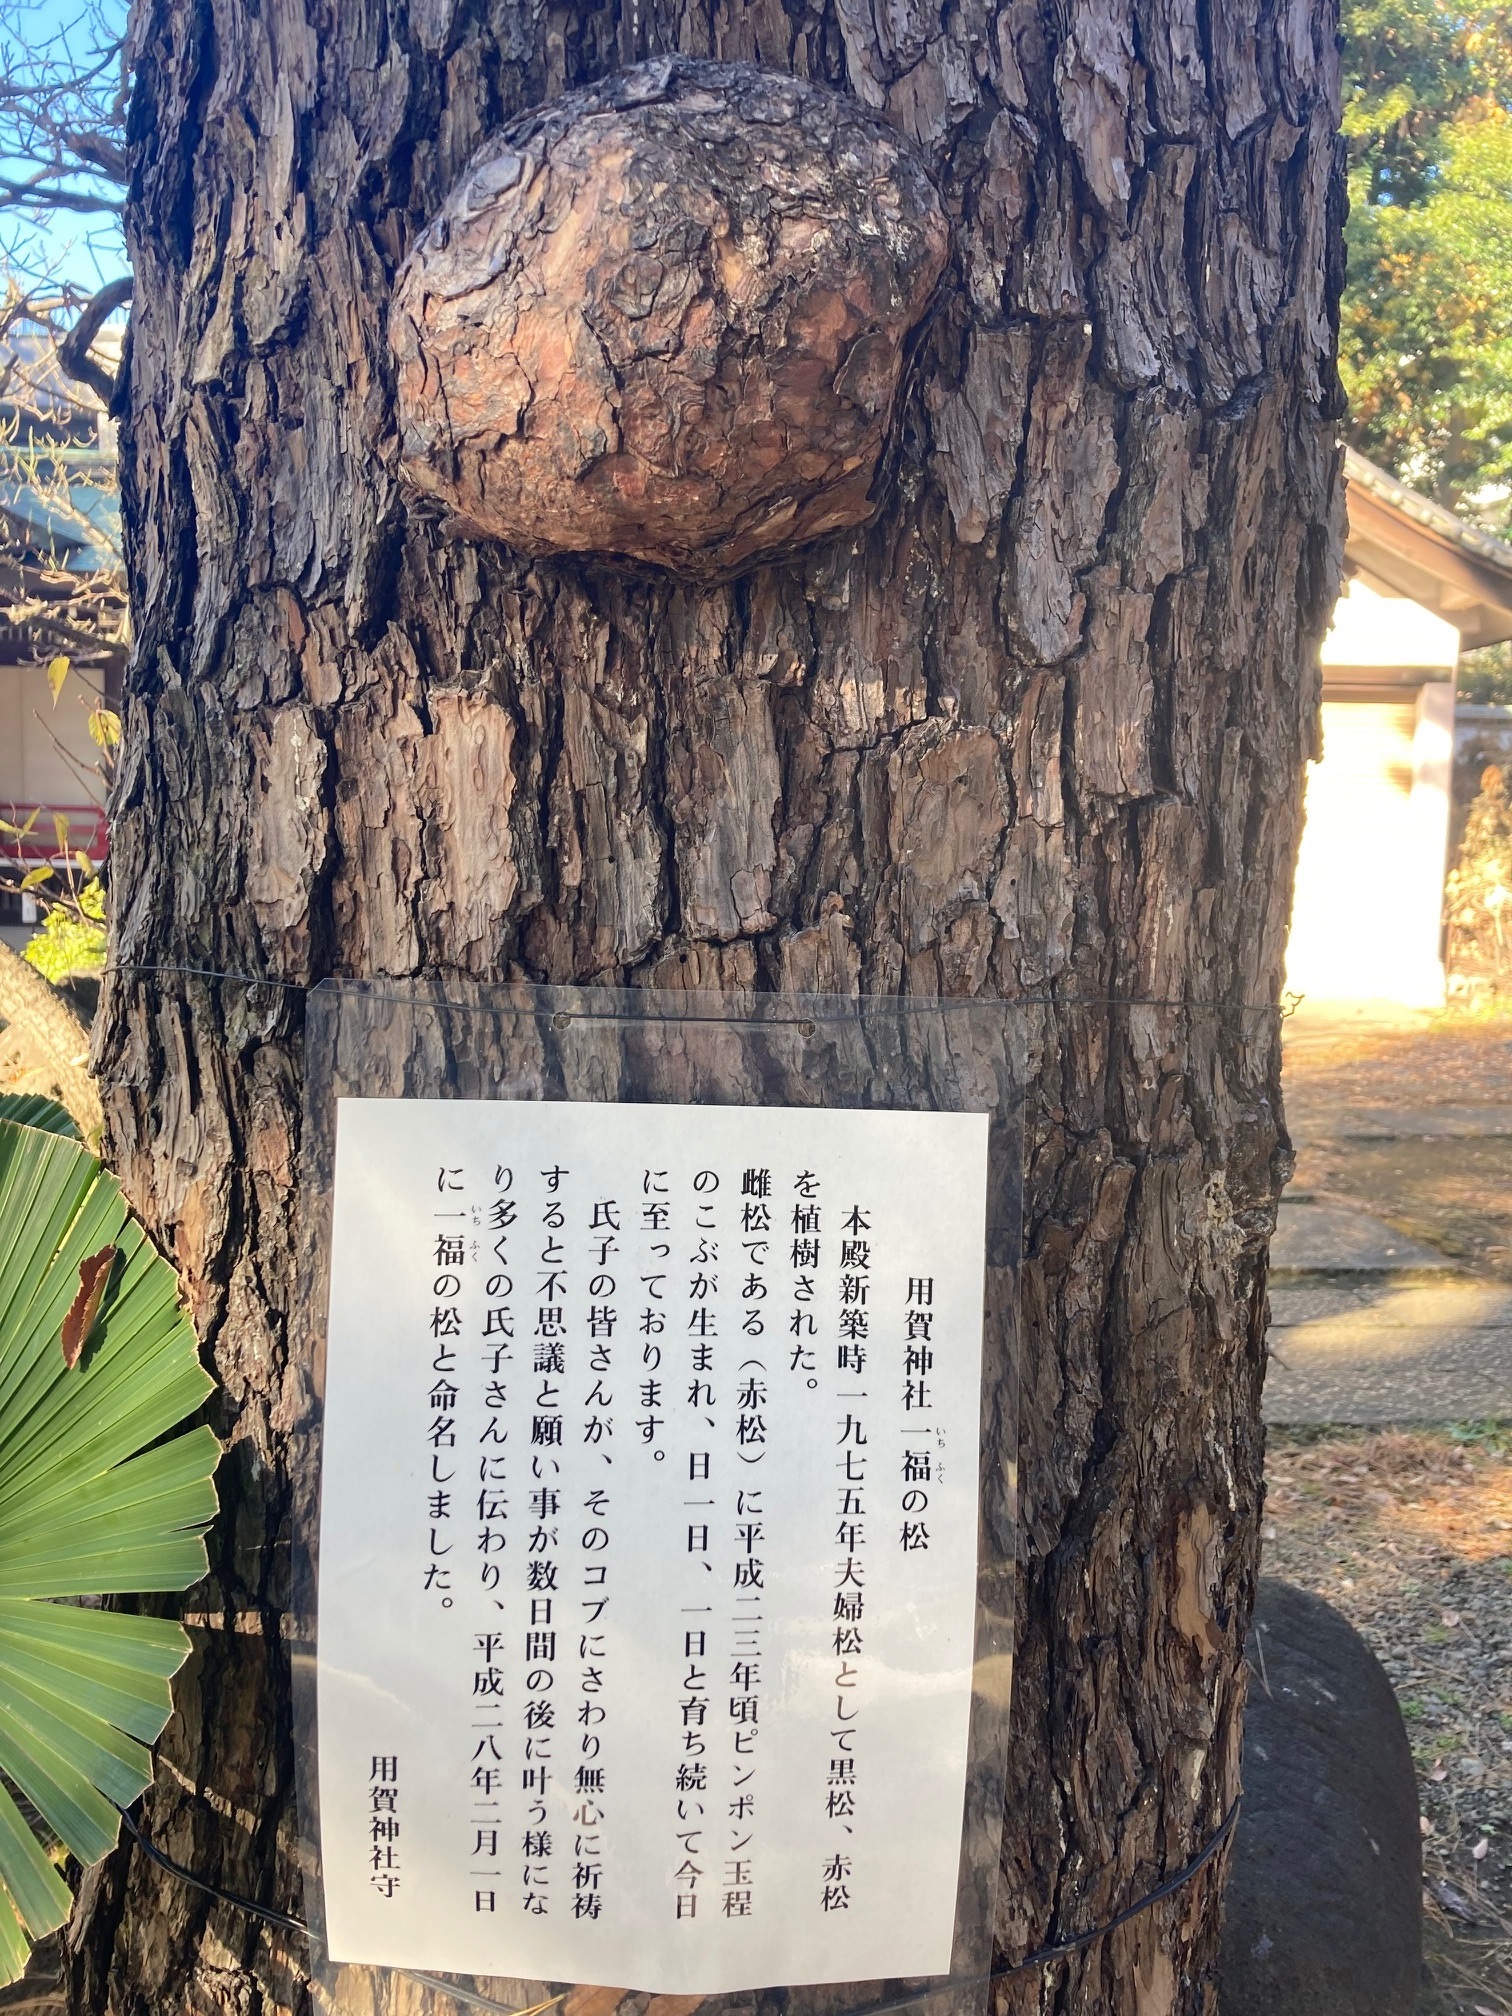 用賀神社一福の松
いち ふく
本殿新築時一九七五年夫婦松として黒松、赤松
を植樹された。
雌松である（赤松）に平成二三年頃ピンポン玉程
のこぶが生まれ、日一日、一日と育ち続いて今日
に至っております。
氏子の皆さんが、そのコブにさわり無心に祈祷
すると不思議と願い事が数日間の後に叶う様にな
り多くの氏子さんに伝わり、平成二八年二月一日
に一福の松と命名しました。
いち ふく
用賀神社守